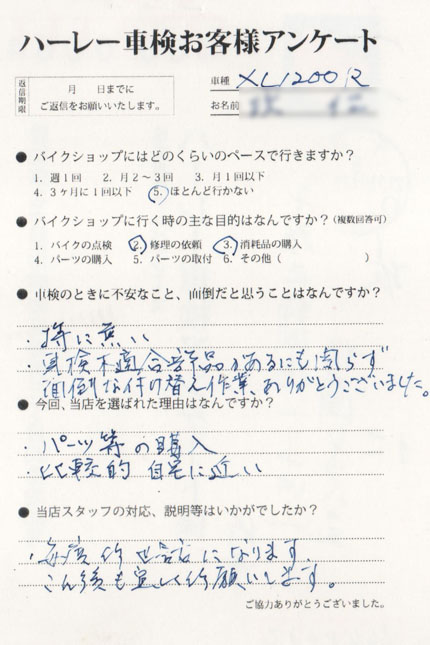 ハーレー車検お客様アンケート
返信期限
月 日までに
ご返信をお願いいたします。
車種 XL1200R
お名前
● バイクショップにはどのくらいのペースで行きますか?
1. 週1回 2. 月2〜3回 3. 月1回以下
4. 3ヶ月に1回以下 5. ほとんど行かない
● バイクショップに行く時の主な目的はなんですか?(複数回答可)
1. バイクの点検 2. 修理の依頼 3. 消耗品の購入
4. パーツの購入 5. パーツの取付 6. その他( )
● 車検のときに不安なこと、面倒だと思うことはなんですか?
・特に無い
・車検不適合部品があるにも関らず
面倒な付け替え作業、ありがとうございました。
● 今回、当店を選ばれた理由はなんですか?
・パーツ等の購入
・比較的 自宅に近い
● 当店スタッフの対応、説明等はいかがでしたか?
・毎度お世話になります。
こん後も宜しくお願いします。
ご協力ありがとうございました。